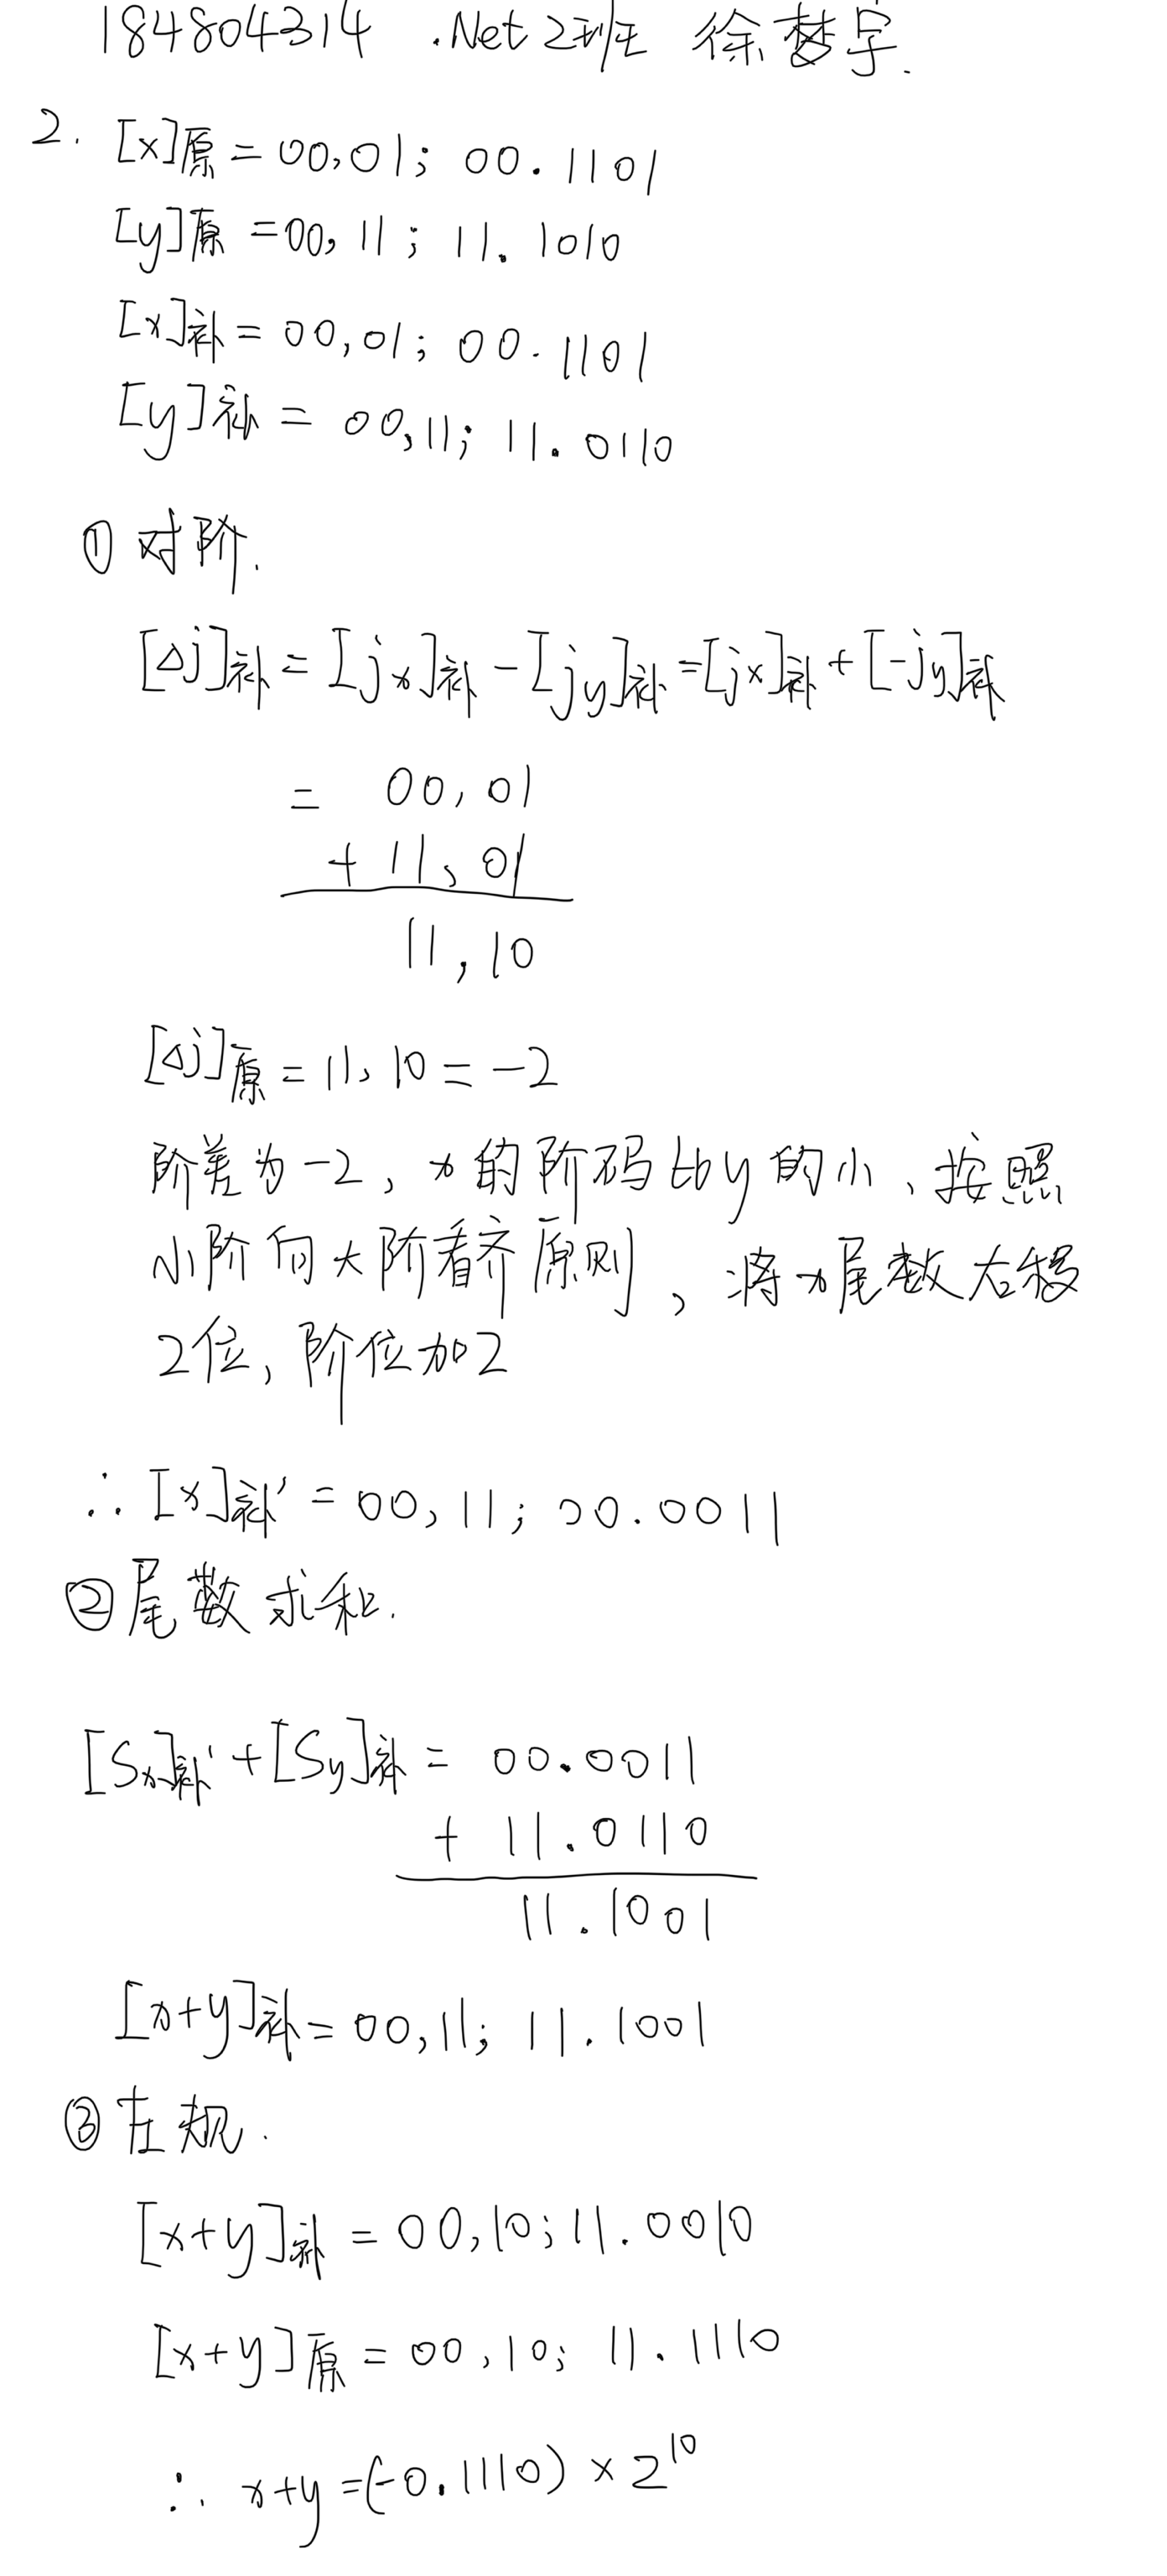 184804314 .Net2班 徐梦宇.
2. [x]原 = 00,01; 00.1101
[y]原 = 00,11; 11.1010
[x]补 = 00,01; 00.1101
[y]补 = 00,11; 11.0110
① 对阶.
[Δj]补 = [jx]补 - [jy]补 = [jx]补 + [-jy]补
= 00,01
+ 11,01
11,10
[Δj]原 = 11,10 = -2
阶差为-2, x的阶码比y的小、按照
小阶向大阶看齐原则, 将x尾数右移
2位, 阶位加2
∴ [x]补' = 00,11; 00.0011
② 尾数求和.
[Sx]补' + [Sy]补 = 00.0011
+ 11.0110
11.1001
[x+y]补 = 00,11; 11.1001
③ 左规.
[x+y]补 = 00,10; 11.0010
[x+y]原 = 00,10; 11.1110
∴ x+y = (-0.1110) × 2^10